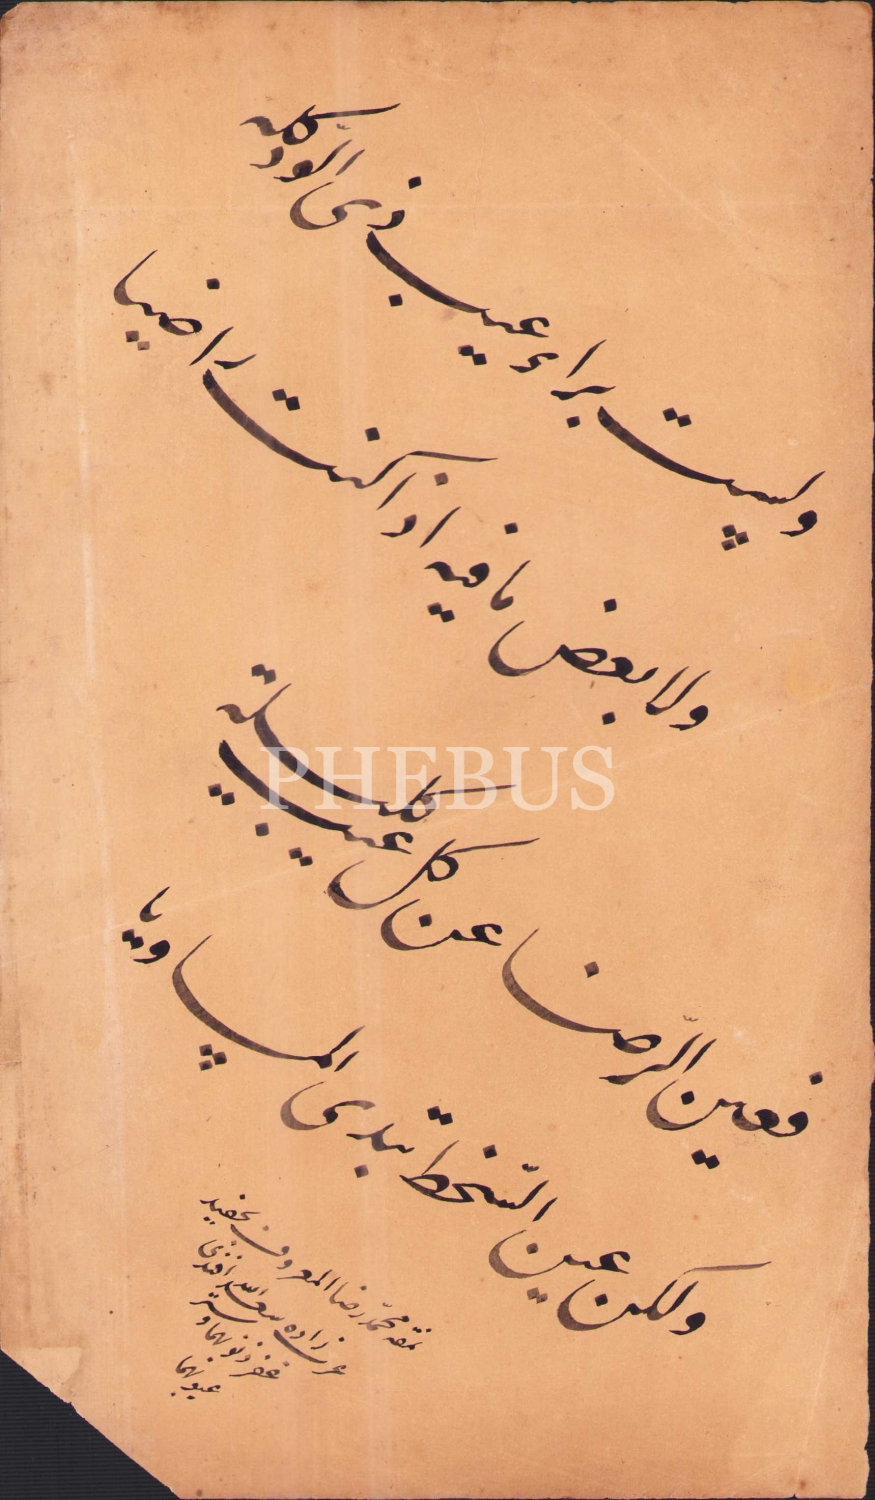 ولست براء عيب ذى الود كله
ولا بعض ما فيه اذا كنت راضيا
فعين الرّضا عن كل عيب كليلة
ولكن عين السّخط تبدى المساويا
نمقه محمّد رضا المعروف بحفيد
عرب زاده سعد الله افندى
غفر ذنوبهما وستر
عيوبهما
PHEBUS